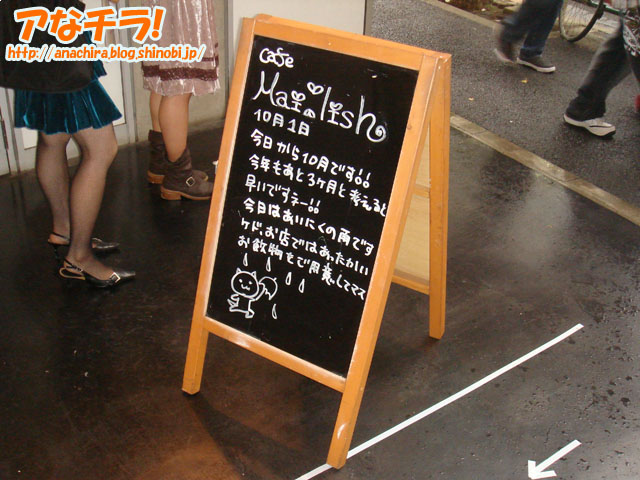 アなチラ!
http://anachira.blog.shinobi.jp/
cafe
Mai:lish
10月1日
今日から10月です!!
今年もあと3ヶ月と考えると
早いですネー!!
今日はあいにくの雨です
ケド、お店ではあったかい
お飲物をご用意してマス